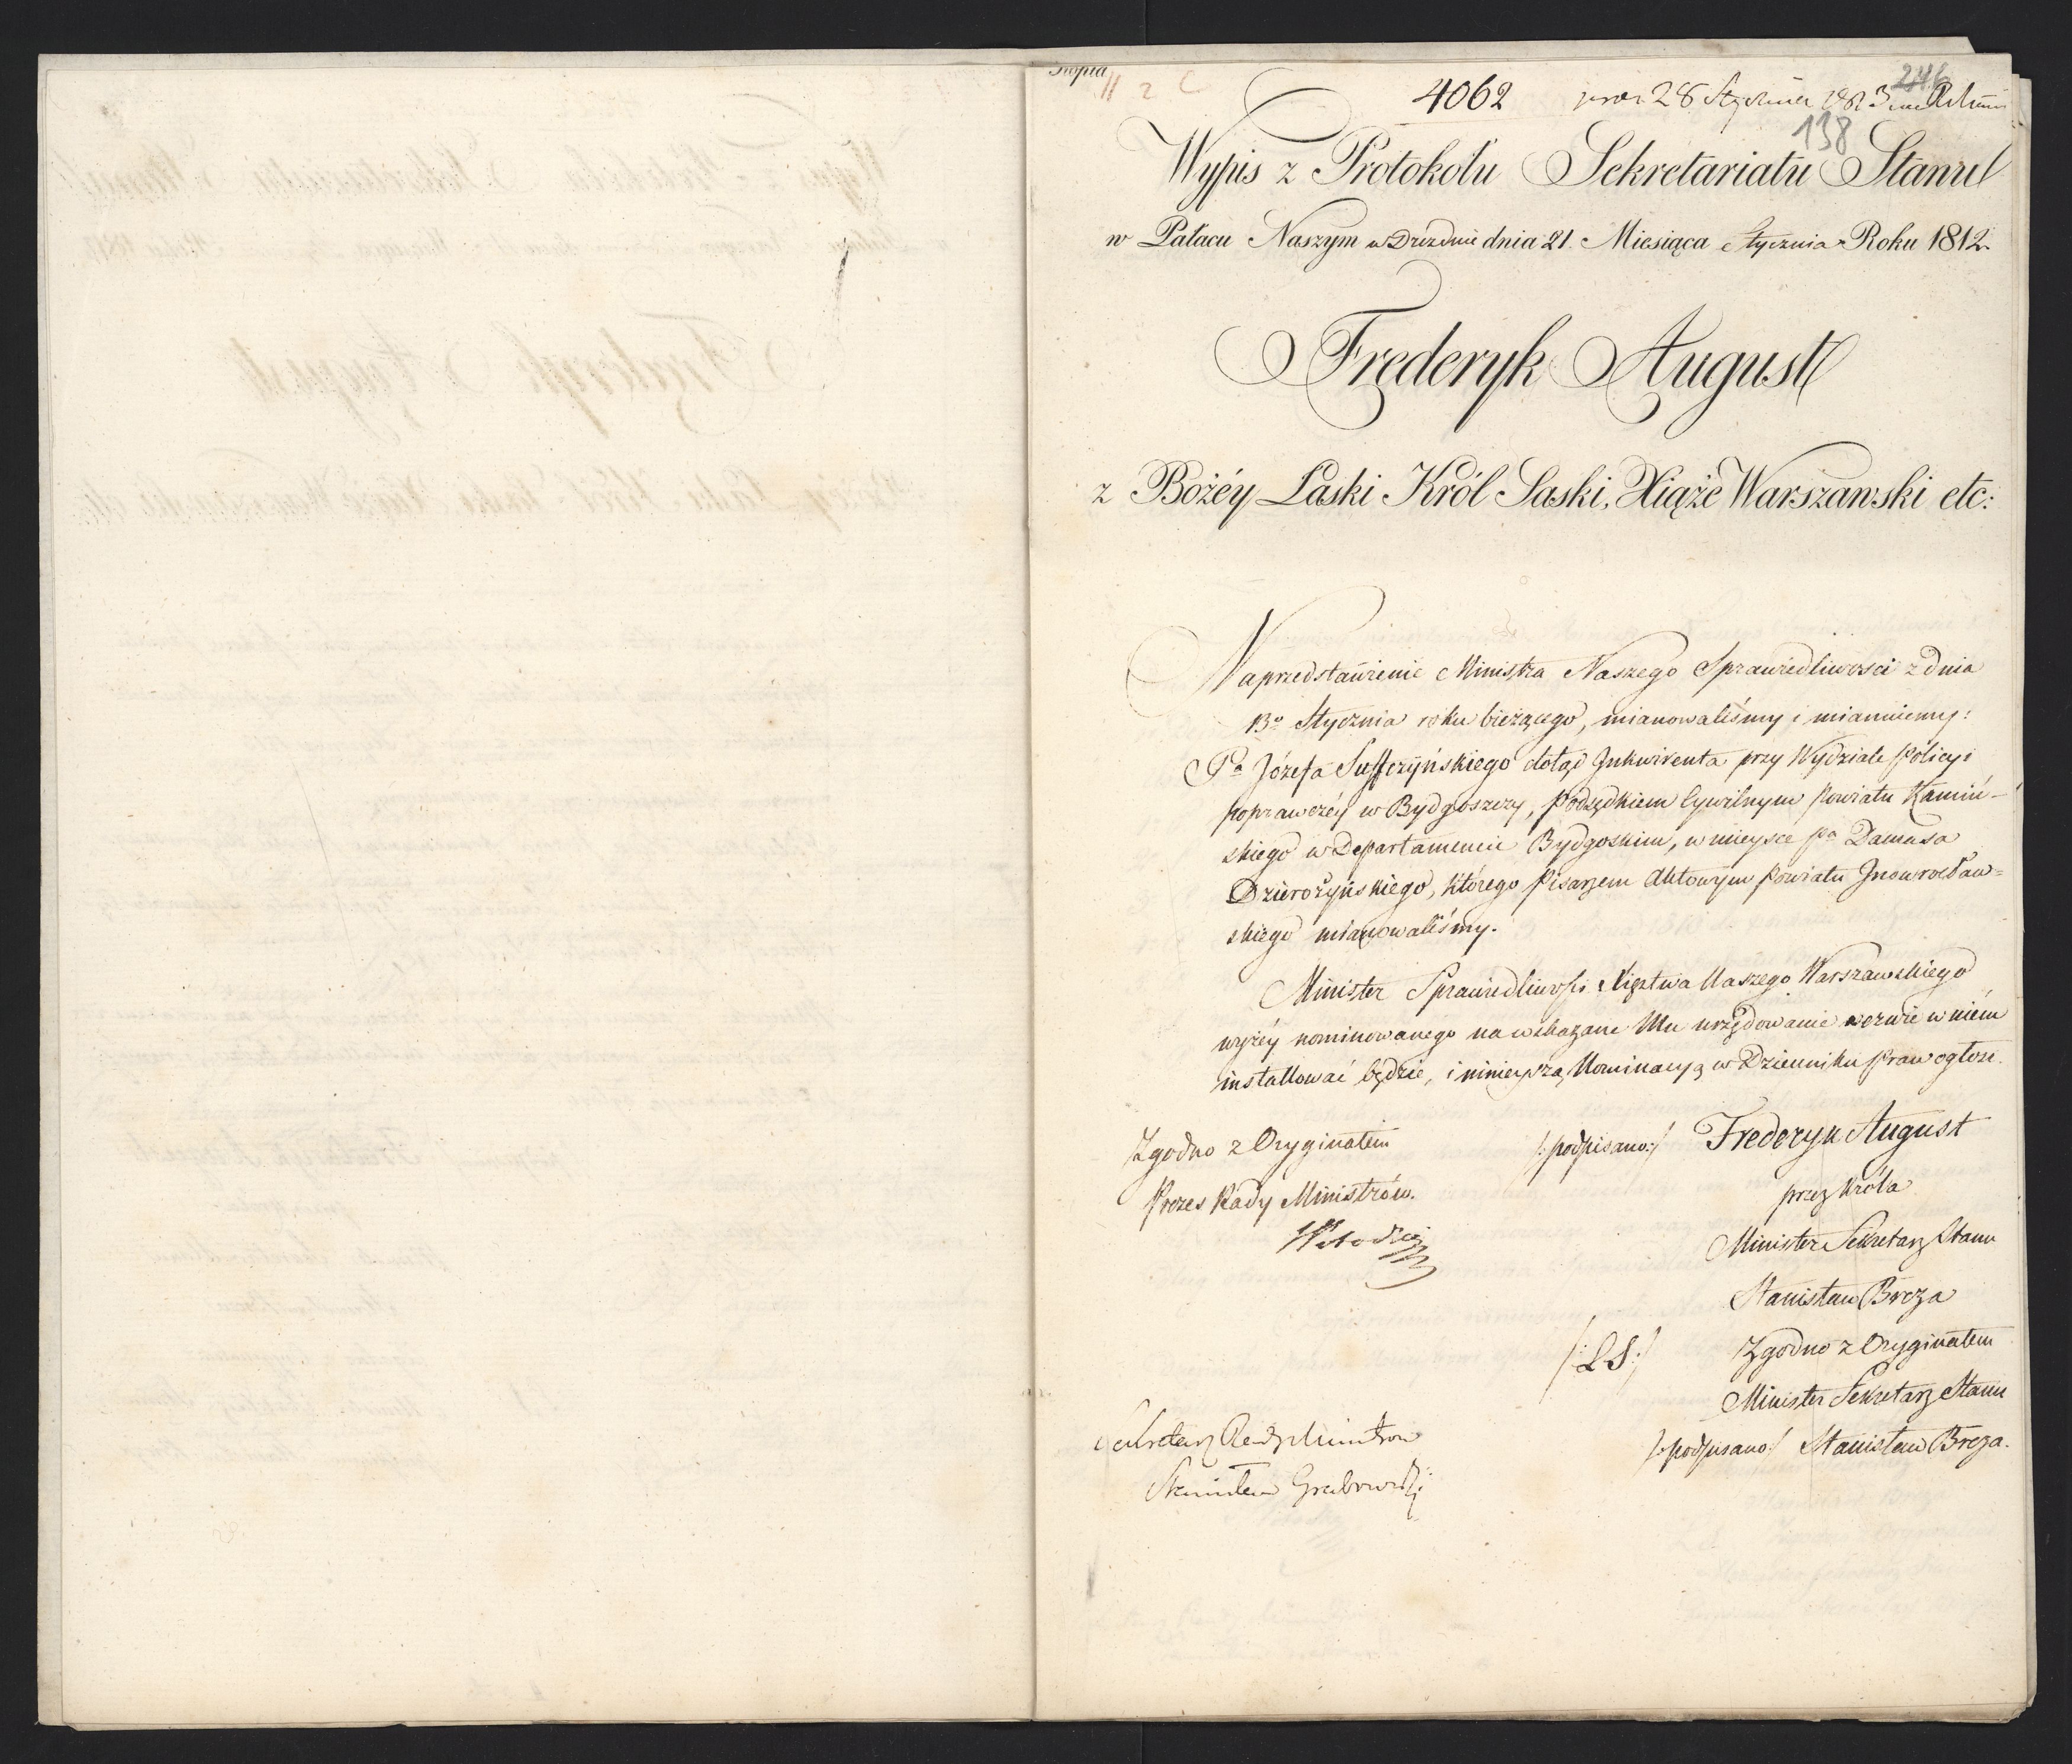 Kopia
4062
28 Stycznia
246
138
Wypis z Protokołu Sekretariatu Stanu
w Pałacu Naszym w Dreznie dnia 21. Miesiąca Stycznia Roku 1812.
Frederyk August
z Bożéy Łaski Król Saski, Xiąże Warszawski etc:
Na przedstawienie Ministra Naszego Sprawiedliwosci z dnia
13º Stycznia roku bieżącego, mianowaliśmy i mianuiemy:
Pª Józefa Suffczyńskiego dotąd Inkwirenta przy Wydziale Policyi
poprawczéy w Bydgoszczy, Podsędkiem Cywilnym Powiatu Kamiń-
skiego w Departamencie Bydgoskim, w mieysce Pª Damasa
Dzierożyńskiego, którego Pisarzem Aktowym Powiatu Inowrocław=
skiego mianowaliśmy.
Minister Sprawiedliwości Xięstwa Naszego Warszawskiego
wyżéy nominowanego na wskazane Mu urzędowanie wezwie w niém
installować będzie, i ninieyszą Nominacyą w Dzienniku Praw ogłosi.
Zgodno z Oryginałem
/:podpisano:/ Frederyk August
Prezes Rady Ministrów.
przez Króla
Minister Sekretarz Stanu
Stanisław Breza
/:LS:/
Zgodno z Oryginałem
Minister Sekretarz Stanu
Sekretarz Rady Ministrow
/:podpisano:/ Stanisław Breza.
Stanisław Grabowski